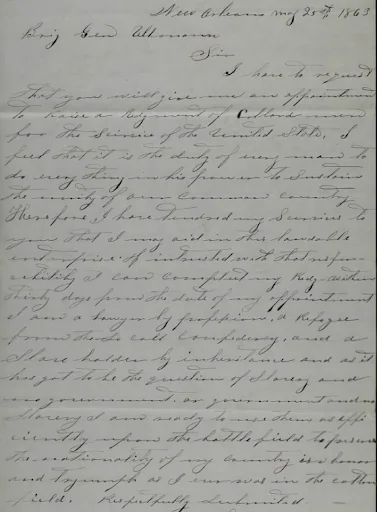 New Orleans May 25th, 1863
Brig Gen Ullmann
Sir
I have to request
that you will give me an appointment
to raise a Regiment of Collord men
for the Service of the United State. I
feel that it is the duty of every man to
do every thing in his power to Sustain
the unity of our common country
therefore I have tendred my Services to
you that I may aid in this laudable
interprise. If intrusted with that respon
sibility I can complet my Reg within
thirty days from the date of my appointment
I am a lawyer by profession, a Refogee
from the So cald Confedercy, and a
Slave holder by inheritance and as it
has got to be the question of Slavery and
no government, or government and no
Slavery I am ready to use them as effi
ciently upon the battle field to
the nationality of my country its honor
and tryumph as I ever was in the cotton
field. Respectfully Submited